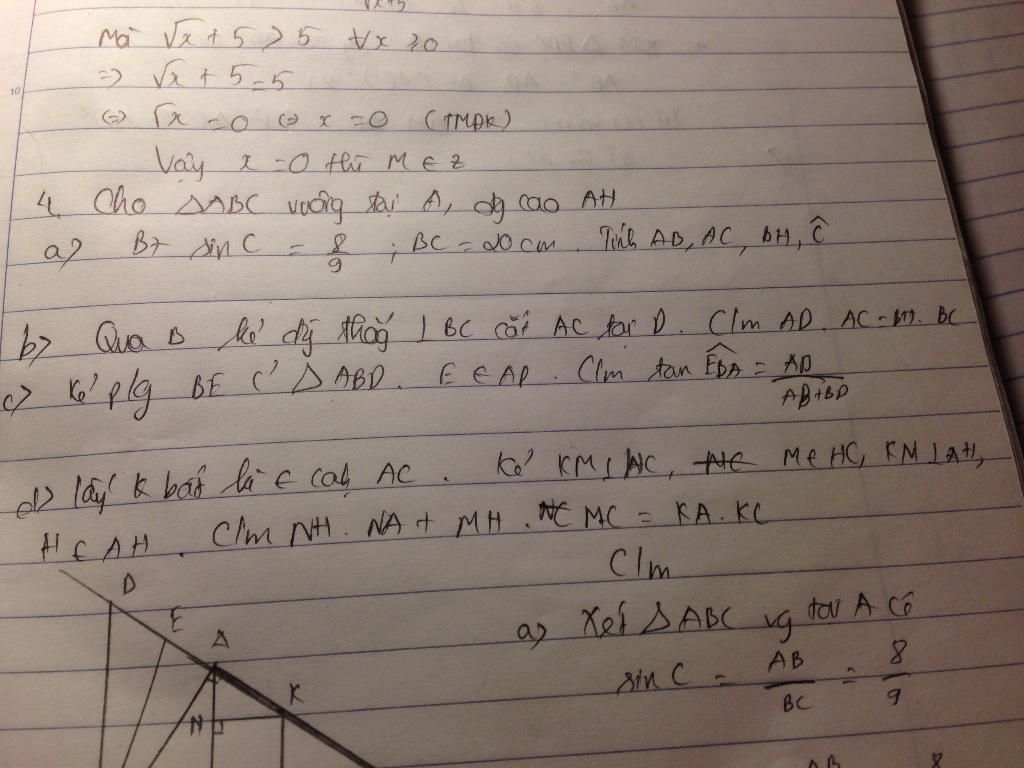 √x+5
Mà √x + 5 > 5 ∀x ≥0
=> √x + 5 = 5
<=> √x = 0 <=> x = 0 (TMĐK)
Vậy x = 0 thì M ∈ Z
4. Cho △ABC vuông tại A, đg cao AH
a) Bt sin C = 8/9 ; BC = 20 cm. Tính AB, AC, BH, Ĉ
b) Qua B kẻ đg thẳng ⊥ BC cắt AC tại D. C/m AD. AC = BH. BC
c) Kẻ p/g BE c' △ABD. E ∈ AD. C/m tan EBA = AD/AB+BD
d) lấy K bất kì ∈ cạh AC. Kẻ KM ⊥ HC, M ∈ HC, KM ⊥ AH,
H ∈ AH. C/m NH. NA + MH. MC = KA. KC
C/m
a) Xét △ABC vg tại A có
sin C = AB/BC = 8/9
D
E
A
K
N
AB 8